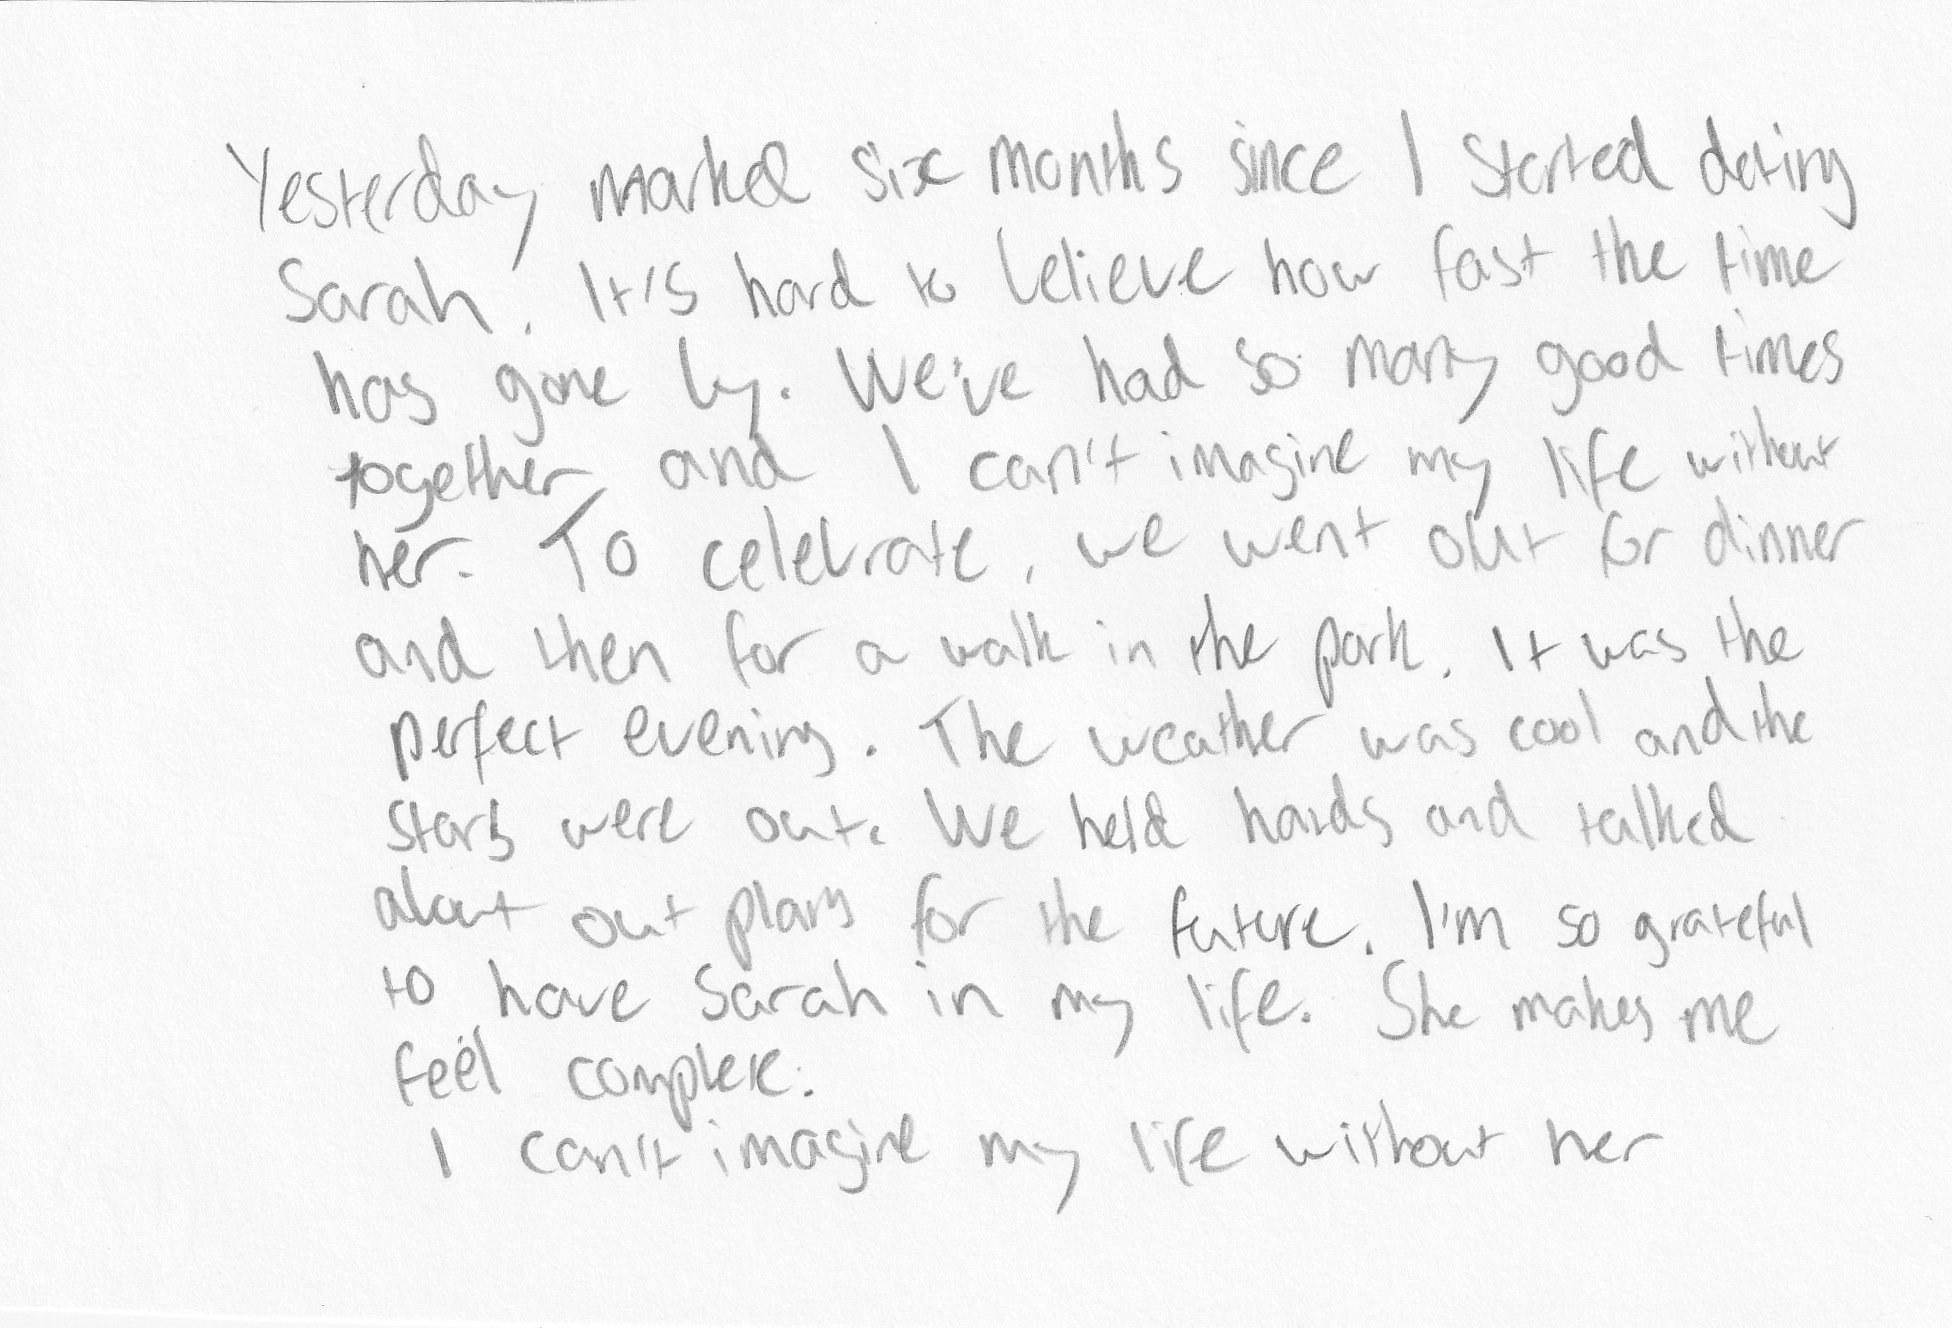 Yesterday marked six months since I started dating
Sarah. It's hard to believe how fast the time
has gone by. We've had so many good times
together and I can't imagine my life without
her. To celebrate, we went out for dinner
and then for a walk in the park. It was the
perfect evening. The weather was cool and the
stars were out. We held hands and talked
about out plans for the future. I'm so grateful
to have Sarah in my life. She makes me
feel complete.
I can't imagine my life without her